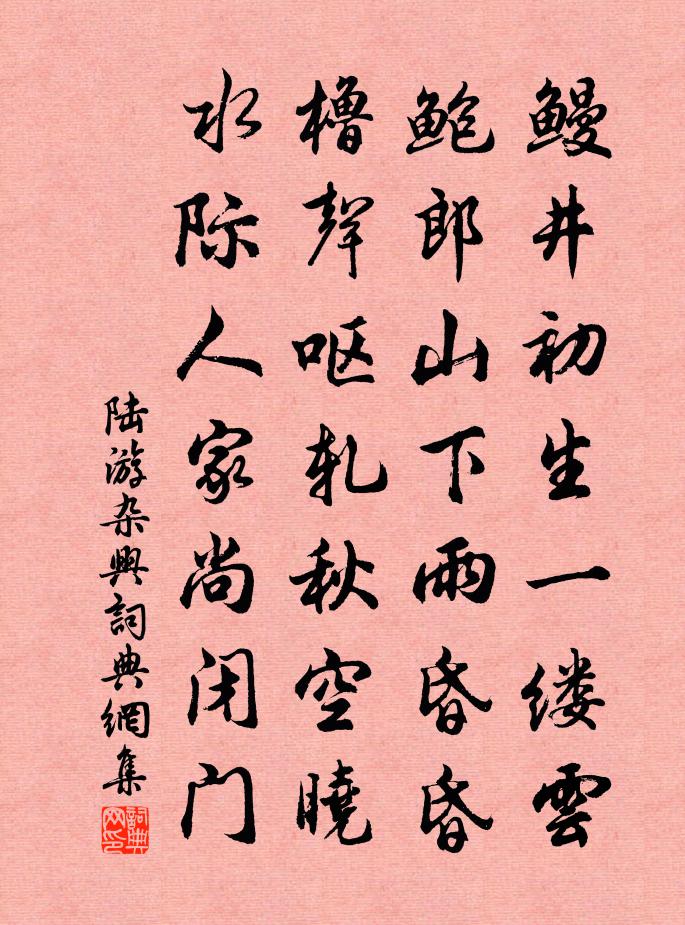 鳗井初生一缕雲
鲍郎山下雨昏昏
橹聲呕轧秋空曉
水际人家尚闭门
陆游杂興詞典網集
詞典网印